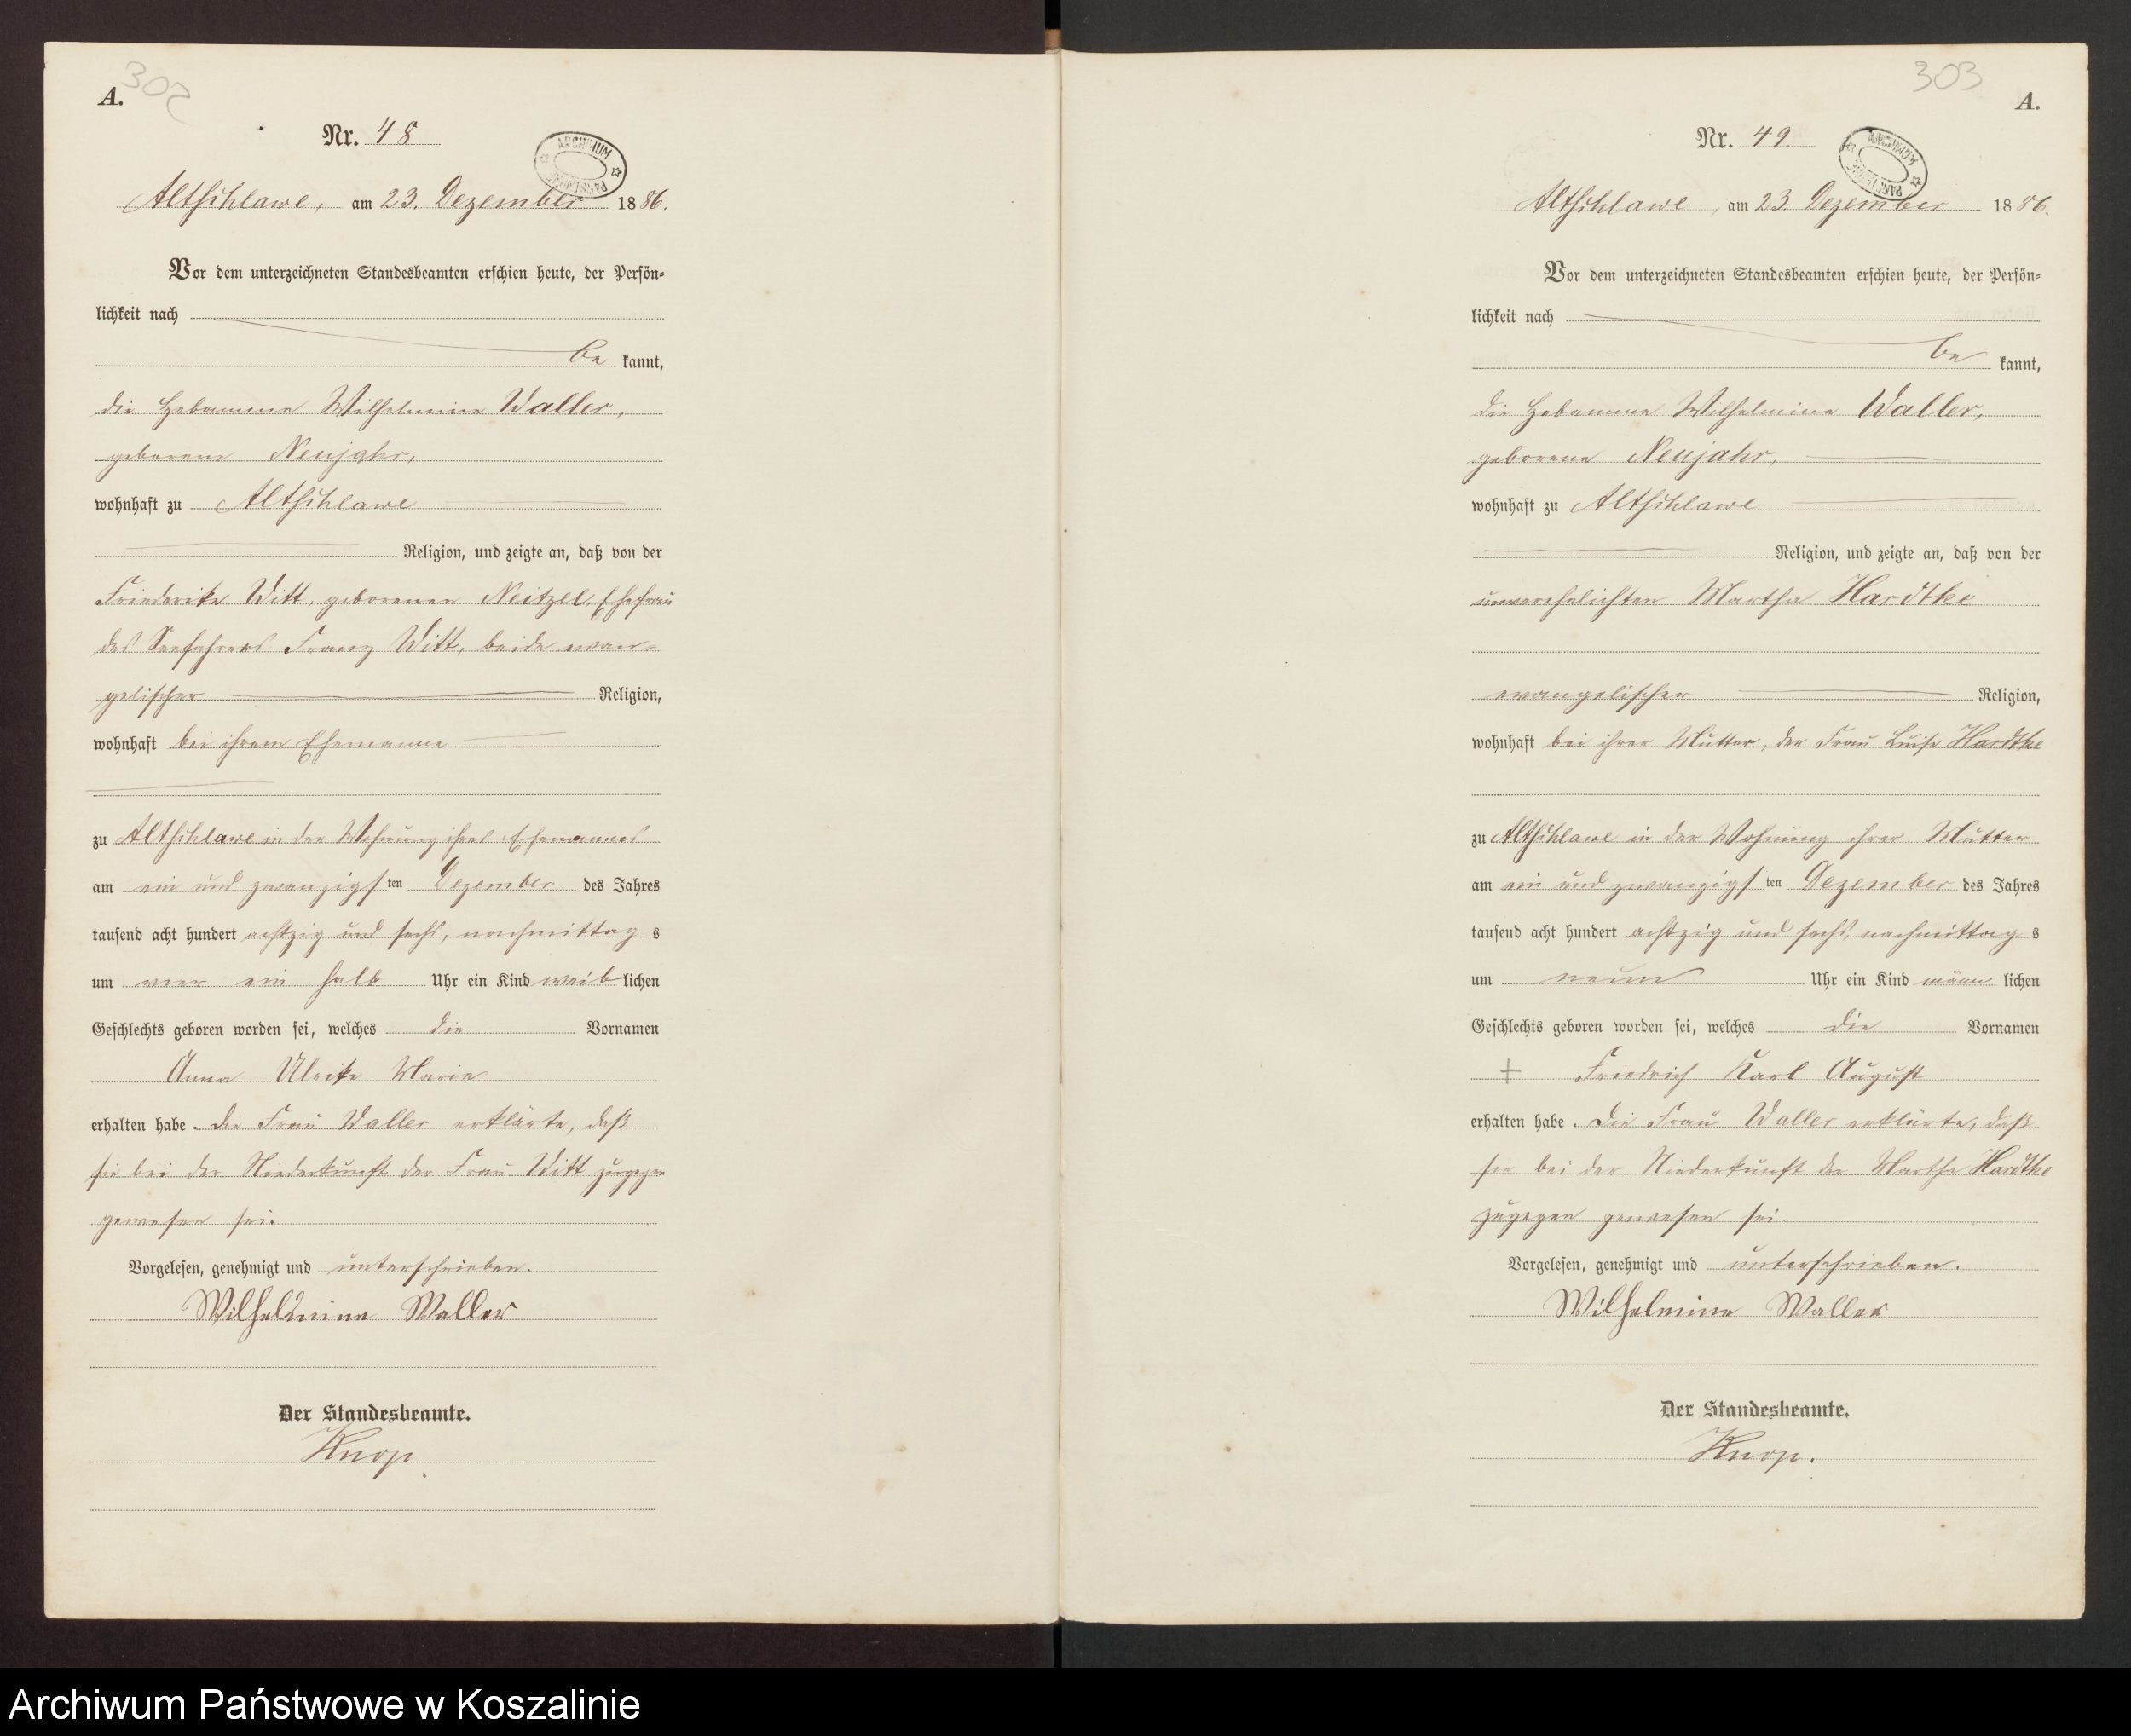 302
A.
Nr. 48
ARCHIWUM PAŃSTWOWE
Altschlawe, am 23. Dezember 1886.
Vor dem unterzeichneten Standesbeamten erschien heute, der Persön-
lichkeit nach
be kannt,
die Hebamme Wilhelmine Waller,
geborene Neujahr,
wohnhaft zu Altschlawe
Religion, und zeigte an, daß von der
Friederike Witt, geborenen Neitzel, Ehefrau
des Seefahrers Franz Witt, beide evan-
gelischer Religion,
wohnhaft bei ihrem Ehemanne
zu Altschlawe in der Wohnung ihres Ehemannes
am ein und zwanzigsten Dezember des Jahres
tausend acht hundert achtzig und sechs, nachmittags
um vier ein halb Uhr ein Kind weiblichen
Geschlechts geboren worden sei, welches die Vornamen
Anna Ulrike Marie
erhalten habe. Die Frau Waller erklärte, daß
sie bei der Niederkunft der Frau Witt zugegen
gewesen sei.
Vorgelesen, genehmigt und unterschrieben.
Wilhelmine Waller
Der Standesbeamte.
Knop.
303
A.
Nr. 49.
ARCHIWUM PAŃSTWOWE
Altschlawe, am 23. Dezember 1886.
Vor dem unterzeichneten Standesbeamten erschien heute, der Persön-
lichkeit nach
be kannt,
die Hebamme Wilhelmine Waller,
geborene Neujahr,
wohnhaft zu Altschlawe
Religion, und zeigte an, daß von der
unverehelichten Martha Hardtke
evangelischer Religion,
wohnhaft bei ihrer Mutter, der Frau Luise Hardtke
zu Altschlawe in der Wohnung ihrer Mutter
am ein und zwanzigsten Dezember des Jahres
tausend acht hundert achtzig und sechs, nachmittags
um neun Uhr ein Kind männlichen
Geschlechts geboren worden sei, welches die Vornamen
+ Friedrich Karl August
erhalten habe. Die Frau Waller erklärte, daß
sie bei der Niederkunft der Martha Hardtke
zugegen gewesen sei.
Vorgelesen, genehmigt und unterschrieben.
Wilhelmine Waller
Der Standesbeamte.
Knop.
Archiwum Państwowe w Koszalinie